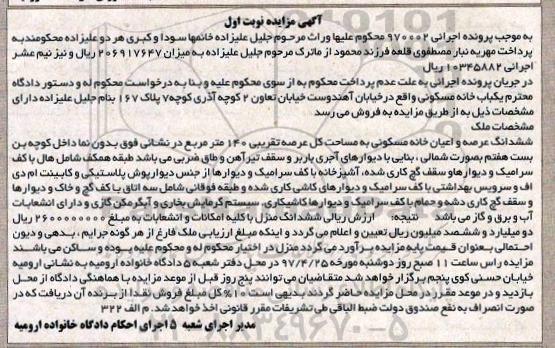 آگهی مزایده نوبت اول
به موجب پرونده اجرائی ۹۷۰۰۰۲ محکوم علیها وراث مرحوم جلیل علیزاده خانمها سودا و کبری هر دو علیزاده محکومند به
پرداخت مهریه نبار مصطفوی قلعه فرزند محمود از ماترک مرحوم جلیل علیزاده به میزان ۲۰۶۹۱۷۶۴۷ ریال و نیز نیم عشر
اجرائی ۱۰۳۴۵۸۸۲ ریال
در جریان پرونده اجرائی به علت عدم پرداخت محکوم به از سوی محکوم علیه و بنا به درخواست محکوم له و دستور دادگاه
محترم یکباب خانه مسکونی واقع در خیابان آهندوست خیابان تعاون ۲ کوچه آذری کوچه ۷ پلاک ۱۶۷ بنام جلیل علیزاده دارای
مشخصات ذیل به از طریق مزایده به فروش می رسد
مشخصات ملک
ششدانگ عرصه و اعیان خانه مسکونی به مساحت کل عرصه تقریبی ۱۴۰ متر مربع در نشانی فوق بدون نما داخل کوچه بن
بست هفتم بصورت شمالی ، بنایی با دیوارهای آجری باربر و سقف تیرآهن و طاق ضربی می باشد طبقه همکف شامل هال با کف
سرامیک و دیوارهاو سقف گچ کاری شده، آشپزخانه با کف سرامیک و دیوارها از جنس دیوارپوش پلاستیکی و کابینت ام دی
اف و سرویس بهداشتی با کف سرامیک و دیوارهای کاشی کاری شده و طبقه فوقانی شامل سه اتاق با کف گچ و خاک و دیوارها
و سقف گچ کاری دشه و حمام با کف سرامیک و دیوارها کاشیکاری، سیستم گرمایش بخاری و آبگرمکن گازی و دارای انشعابات
آب و برق و گاز می باشد نتیجه: ارزش ریالی ششدانگ منزل با کلیه امکانات و انشعابات به مبلغ ۲۶۰۰۰۰۰۰۰۰ ریال
دو میلیارد و ششصد میلیون ریال تعیین و اعلام می گردد و اینکه مبلغ ارزیابی ملک فارغ از هر گونه جرایم ، بدهی و دیون
احتمالی بعنوان قیمت پایه مزایده برآورد می گردد منزل در اختیار محکوم له و محکوم علیه بوده و ساکن می باشند
مزایده راس ساعت ۱۱ صبح روز دوشنبه مورخه ۹۷/۴/۲۵ در محل دفتر شعبه ۵ دادگاه خانواده ارومیه به نشانی ارومیه
خیابان حسنی کوی پنجم برگزار خواهد شد متقاضیان می توانند پنج روز قبل از موعد مزایده با هماهنگی دادگاه از محل
بازدید و در موعد مقرر در محل مزایده حاضر گردند بدیهی است ۱۰٪ کل مبلغ فروش نقدا از برنده آن دریافت که در
صورت انصراف به نفع صندوق دولت ضبط الباقی طی تشریفات مقرر قانونی اخذ خواهد شد. م الف ۳۲۲
مدیر اجرای شعبه ۵ اجرای احکام دادگاه خانواده ارومیه